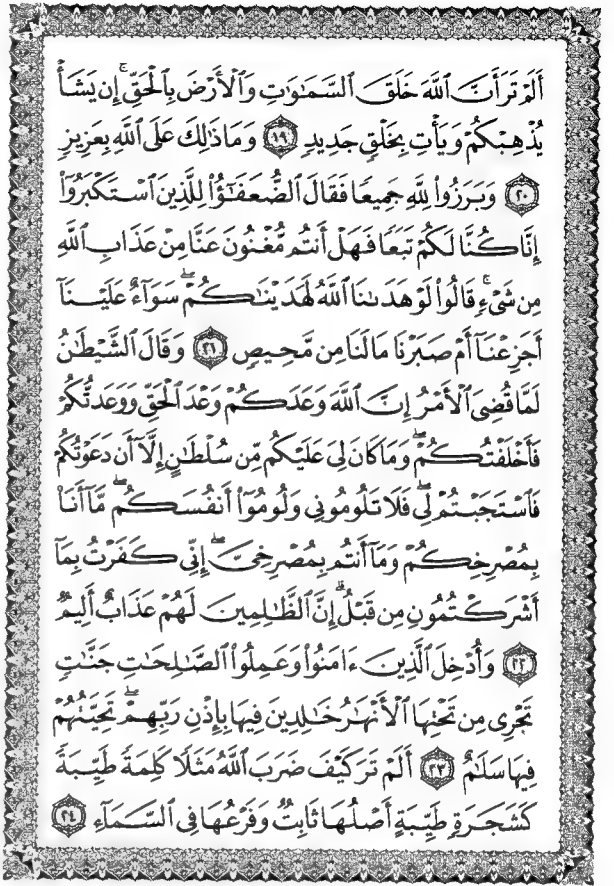 أَلَمْ تَرَ أَنَّ ٱللَّهَ خَلَقَ ٱلسَّمَـٰوَٰتِ وَٱلْأَرْضَ بِٱلْحَقِّ ۚ إِن يَشَأْ
يُذْهِبْكُمْ وَيَأْتِ بِخَلْقٍ جَدِيدٍ ﴿١٩﴾ وَمَا ذَٰلِكَ عَلَى ٱللَّهِ بِعَزِيزٍ
﴿٢٠﴾ وَبَرَزُوا۟ لِلَّهِ جَمِيعًا فَقَالَ ٱلضُّعَفَـٰٓؤُا۟ لِلَّذِينَ ٱسْتَكْبَرُوٓا۟
إِنَّا كُنَّا لَكُمْ تَبَعًا فَهَلْ أَنتُم مُّغْنُونَ عَنَّا مِنْ عَذَابِ ٱللَّهِ
مِن شَىْءٍ ۚ قَالُوا۟ لَوْ هَدَىٰنَا ٱللَّهُ لَهَدَيْنَـٰكُمْ ۖ سَوَآءٌ عَلَيْنَآ
أَجَزِعْنَآ أَمْ صَبَرْنَا مَا لَنَا مِن مَّحِيصٍ ﴿٢١﴾ وَقَالَ ٱلشَّيْطَـٰنُ
لَمَّا قُضِىَ ٱلْأَمْرُ إِنَّ ٱللَّهَ وَعَدَكُمْ وَعْدَ ٱلْحَقِّ وَوَعَدتُّكُمْ
فَأَخْلَفْتُكُمْ ۖ وَمَا كَانَ لِىَ عَلَيْكُم مِّن سُلْطَـٰنٍ إِلَّآ أَن دَعَوْتُكُمْ
فَٱسْتَجَبْتُمْ لِى ۖ فَلَا تَلُومُونِى وَلُومُوٓا۟ أَنفُسَكُم ۖ مَّآ أَنَا۠
بِمُصْرِخِكُمْ وَمَآ أَنتُم بِمُصْرِخِىَّ ۖ إِنِّى كَفَرْتُ بِمَآ
أَشْرَكْتُمُونِ مِن قَبْلُ ۗ إِنَّ ٱلظَّـٰلِمِينَ لَهُمْ عَذَابٌ أَلِيمٌ
﴿٢٢﴾ وَأُدْخِلَ ٱلَّذِينَ ءَامَنُوا۟ وَعَمِلُوا۟ ٱلصَّـٰلِحَـٰتِ جَنَّـٰتٍ
تَجْرِى مِن تَحْتِهَا ٱلْأَنْهَـٰرُ خَـٰلِدِينَ فِيهَا بِإِذْنِ رَبِّهِمْ ۖ تَحِيَّتُهُمْ
فِيهَا سَلَـٰمٌ ﴿٢٣﴾ أَلَمْ تَرَ كَيْفَ ضَرَبَ ٱللَّهُ مَثَلًا كَلِمَةً طَيِّبَةً
كَشَجَرَةٍ طَيِّبَةٍ أَصْلُهَا ثَابِتٌ وَفَرْعُهَا فِى ٱلسَّمَآءِ ﴿٢٤﴾